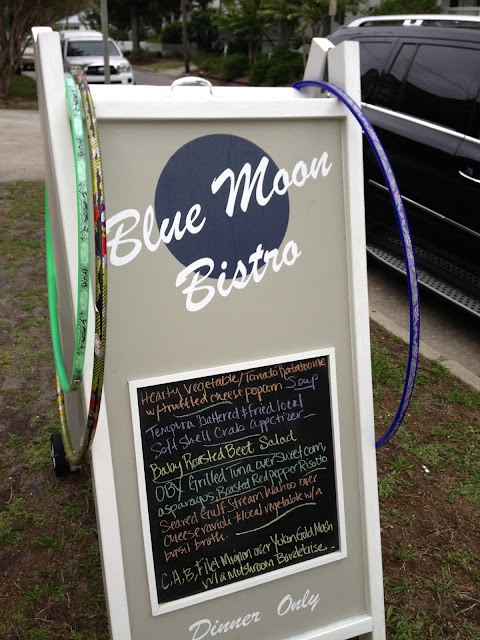 Blue Moon
Bistro
Hearty Vegetable/Tomato Ratatouille
w/truffled cheese popcorn Soup
Tempura Battered & fried local
Soft Shell Crab appetizer
Baby Roasted Beet Salad
OBX Grilled Tuna over Sweet corn,
asparagus, Roasted Red Pepper Risotto
Seared Gulf Stream Wahoo over
Cheese ravioli & local vegetable w/a
basil broth.
C.A.B. Filet Mignon over Yukon Gold Mash
w/a Mushroom Bordelaise
Dinner Only